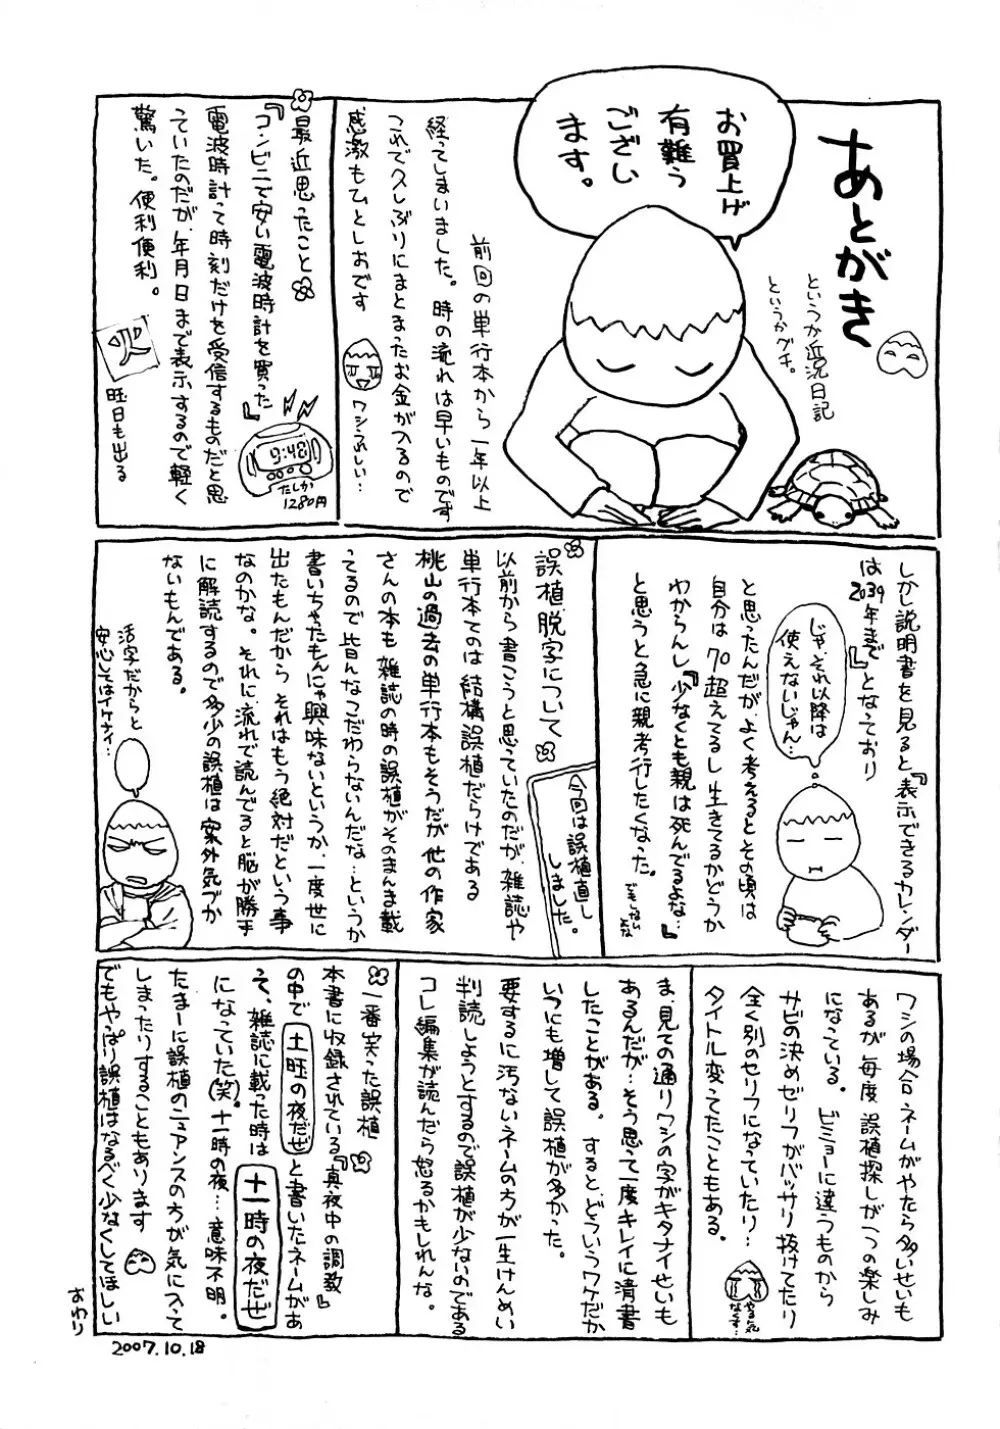 あとがき
というか近況日記
というかグチ。
お買上げ
有難う
ござい
ます。
前回の単行本から一年以上
経ってしまいました。時の流れは早いものです
これで久しぶりにまとまったお金が入るので
感激もひとしおです
ワシうれしい…
最近思ったこと
『コンビニで安い電波時計を買った』
電波時計って時刻だけを受信するものだと思
っていたのだが、年月日まで表示するので軽く
驚いた。便利便利。
9:48
たしか
1280円
曜日も出る
しかし説明書を見ると『表示できるカレンダー
は2039年まで』となっており
じゃ、それ以降は
使えないじゃん…
と思ったんだが、よく考えるとその頃は
自分は70超えてるし生きてるかどうか
わからんし『少なくとも親は死んでるよな…』
と思うと急に親孝行したくなった。
でもしない
よな
誤植脱字について
今回は誤植直し
しました。
以前から書こうと思っていたのだが、雑誌や
単行本てのは結構誤植だらけである
桃山の過去の単行本もそうだが他の作家
さんの本も雑誌の時の誤植がそのまんま載
ってるので皆んなこだわらないんだな…というか
書いちゃたもんにゃ興味ないというか、一度世に
出たもんだからそれはもう絶対だという事
なのかな。それに流れで読んでると脳が勝手
に解読するので多少の誤植は案外気づか
ないもんである。
活字だからと
安心してはイケナイ…
ワシの場合、ネームがやたら多いせいも
あるが毎度誤植探しが一つの楽しみ
になっている。ビミョーに違うものから
サビの決めゼリフがバッサリ抜けてたり
全く別のセリフになっていたり…
タイトル変ってたこともある。
やる気
なくす…
ま、見ての通りワシの字がキタナイせいも
あるんだが…そう思って一度キレイに清書
したことがある。するとどういうワケだか
いつにも増して誤植が多かった。
要するに汚ないネームの方が一生けんめい
判読しようとするので誤植が少ないのである
コレ編集が読んだら怒るかもしれんな。
一番笑った誤植
本書に収録されている『真夜中の調教』
の中で土旺の夜だぜと書いたネームがあ
って、雑誌に載った時は十一時の夜だぜ
になっていた(笑)。十一時の夜…意味不明。
たまーに誤植のニュアンスの方が気に入って
しまったりすることもあります
でもやっぱり誤植はなるべく少なくしてほしい
おわり
2007.10.18